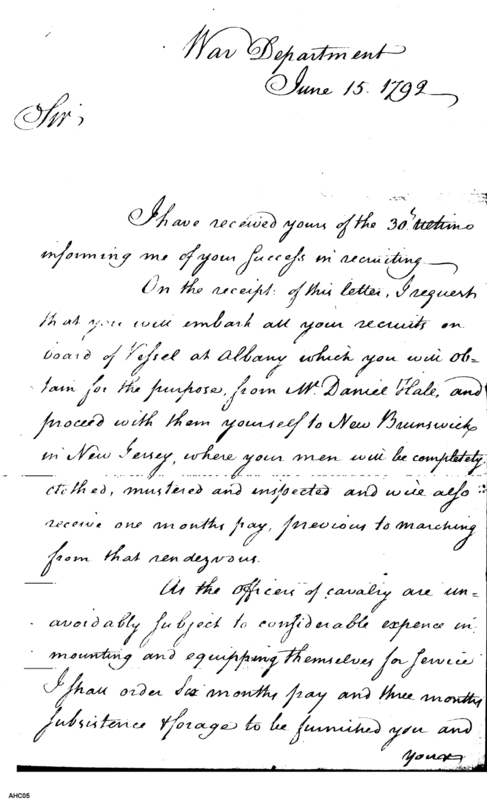 War Department
June 15. 1792
Sir,
I have received yours of the 30th ultimo
informing me of your success in recruiting
On the receipt of this letter, I request
that you will embark all your recruits on
board of Vessel at Albany which you will ob=
tain for the purpose, from Mr. Daniel Hale, and
proceed with them yourself to New Brunswick
in New Jersey, where your men will be completely
clothed, mustered and inspected and will also
receive one months pay, previous to marching
from that rendezvous.
As the officers of cavalry are un=
avoidably subject to considerable expence in
mounting and equipping themselves for service
I shall order Six months pay and three months
subsistence & forage to be furnished you and
your
AHC05